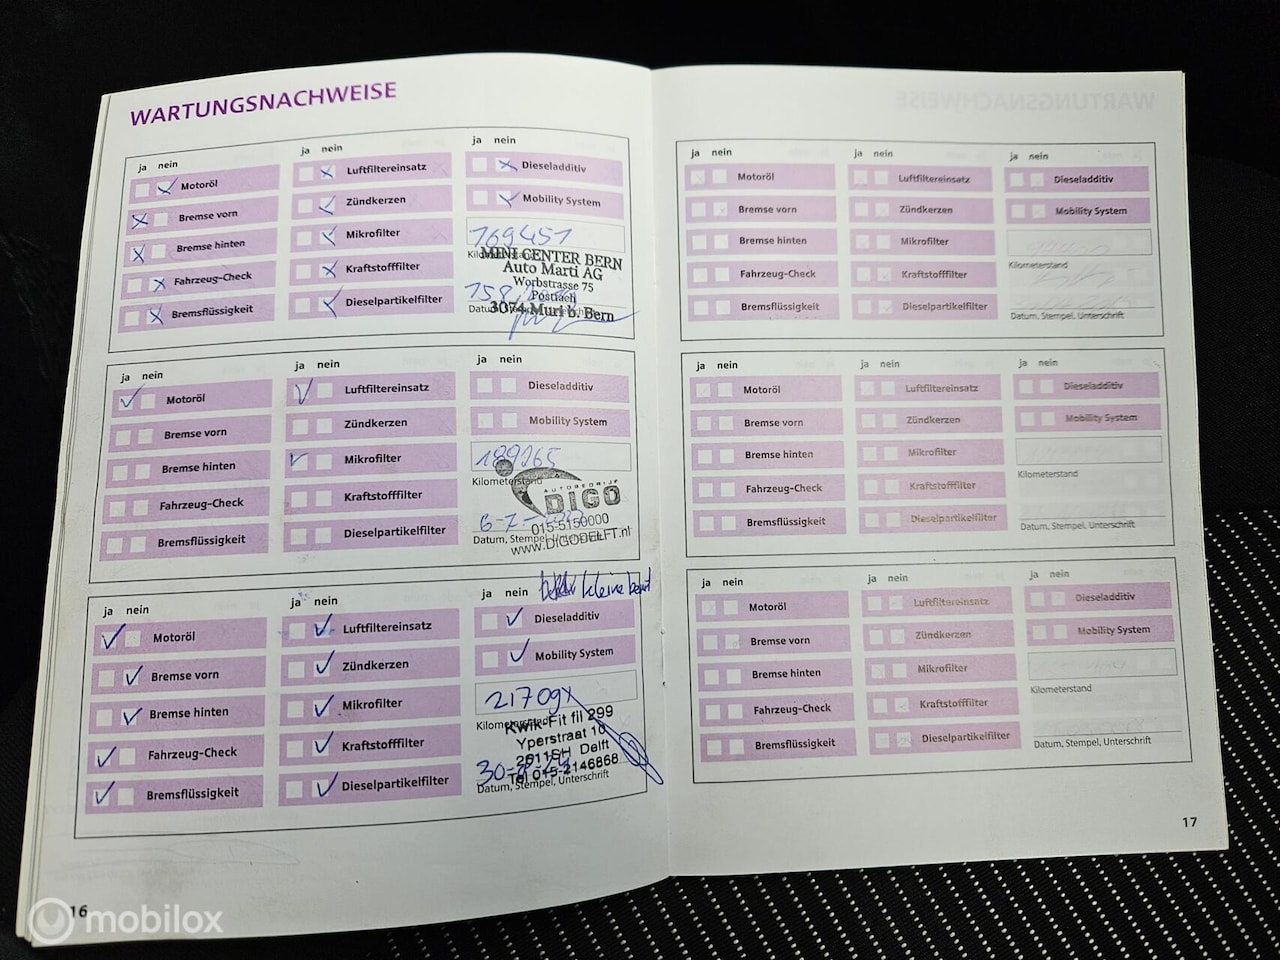 WARTUNGSNACHWEISE
ja nein
Motoröl
Bremse vorn
Bremse hinten
Fahrzeug-Check
Bremsflüssigkeit
ja nein
Luftfiltereinsatz
Zündkerzen
Mikrofilter
Kraftstofffilter
Dieselpartikelfilter
ja nein
Dieseladditiv
Mobility System
169451
MINI CENTER BERN
Auto Marti AG
Worbstrasse 75
Postfach
3074 Muri b. Bern
ja nein
Motoröl
Bremse vorn
Bremse hinten
Fahrzeug-Check
Bremsflüssigkeit
ja nein
Luftfiltereinsatz
Zündkerzen
Mikrofilter
Kraftstofffilter
Dieselpartikelfilter
ja nein
Dieseladditiv
Mobility System
189265
Kilometerstand
AUTOBEDRIJF
DIGO
015-5150000
Datum, Stempel, Unterschrift
www.DIGODELFT.nl
ja nein
Motoröl
Bremse vorn
Bremse hinten
Fahrzeug-Check
Bremsflüssigkeit
ja nein
Luftfiltereinsatz
Zündkerzen
Mikrofilter
Kraftstofffilter
Dieselpartikelfilter
kleine beurt
ja nein
Dieseladditiv
Mobility System
Kwik-Fit fil 299
Yperstraat 10
Delft
Tel 015-2146868
Datum, Stempel, Unterschrift
16
ja nein
Motoröl
Bremse vorn
Bremse hinten
Fahrzeug-Check
Bremsflüssigkeit
ja nein
Luftfiltereinsatz
Zündkerzen
Mikrofilter
Kraftstofffilter
Dieselpartikelfilter
ja nein
Dieseladditiv
Mobility System
Kilometerstand
Datum, Stempel, Unterschrift
ja nein
Motoröl
Bremse vorn
Bremse hinten
Fahrzeug-Check
Bremsflüssigkeit
ja nein
Luftfiltereinsatz
Zündkerzen
Mikrofilter
Kraftstofffilter
Dieselpartikelfilter
ja nein
Dieseladditiv
Mobility System
Kilometerstand
Datum, Stempel, Unterschrift
ja nein
Motoröl
Bremse vorn
Bremse hinten
Fahrzeug-Check
Bremsflüssigkeit
ja nein
Luftfiltereinsatz
Zündkerzen
Mikrofilter
Kraftstofffilter
Dieselpartikelfilter
ja nein
Dieseladditiv
Mobility System
Kilometerstand
Datum, Stempel, Unterschrift
17
mobilox